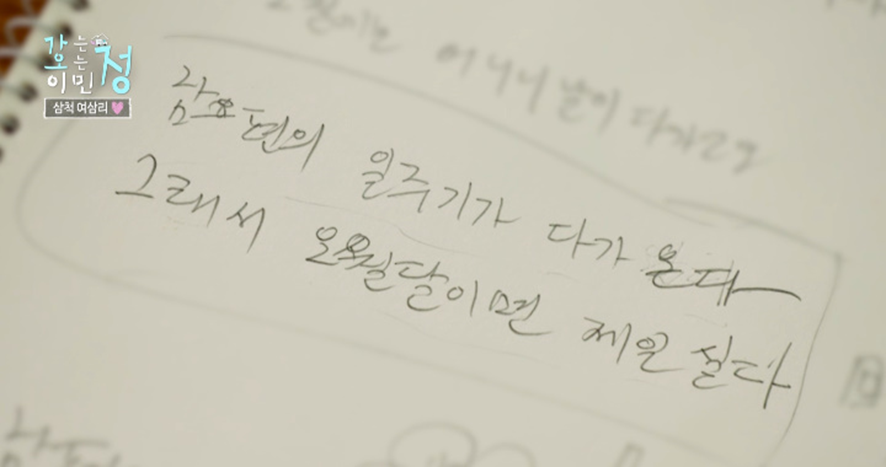 가는
오는
이민정
삼척 여삼리
어버이 날이 다가오고
남편의 일주기가 다가 온다
그래서 오월달이면 제일 싫다